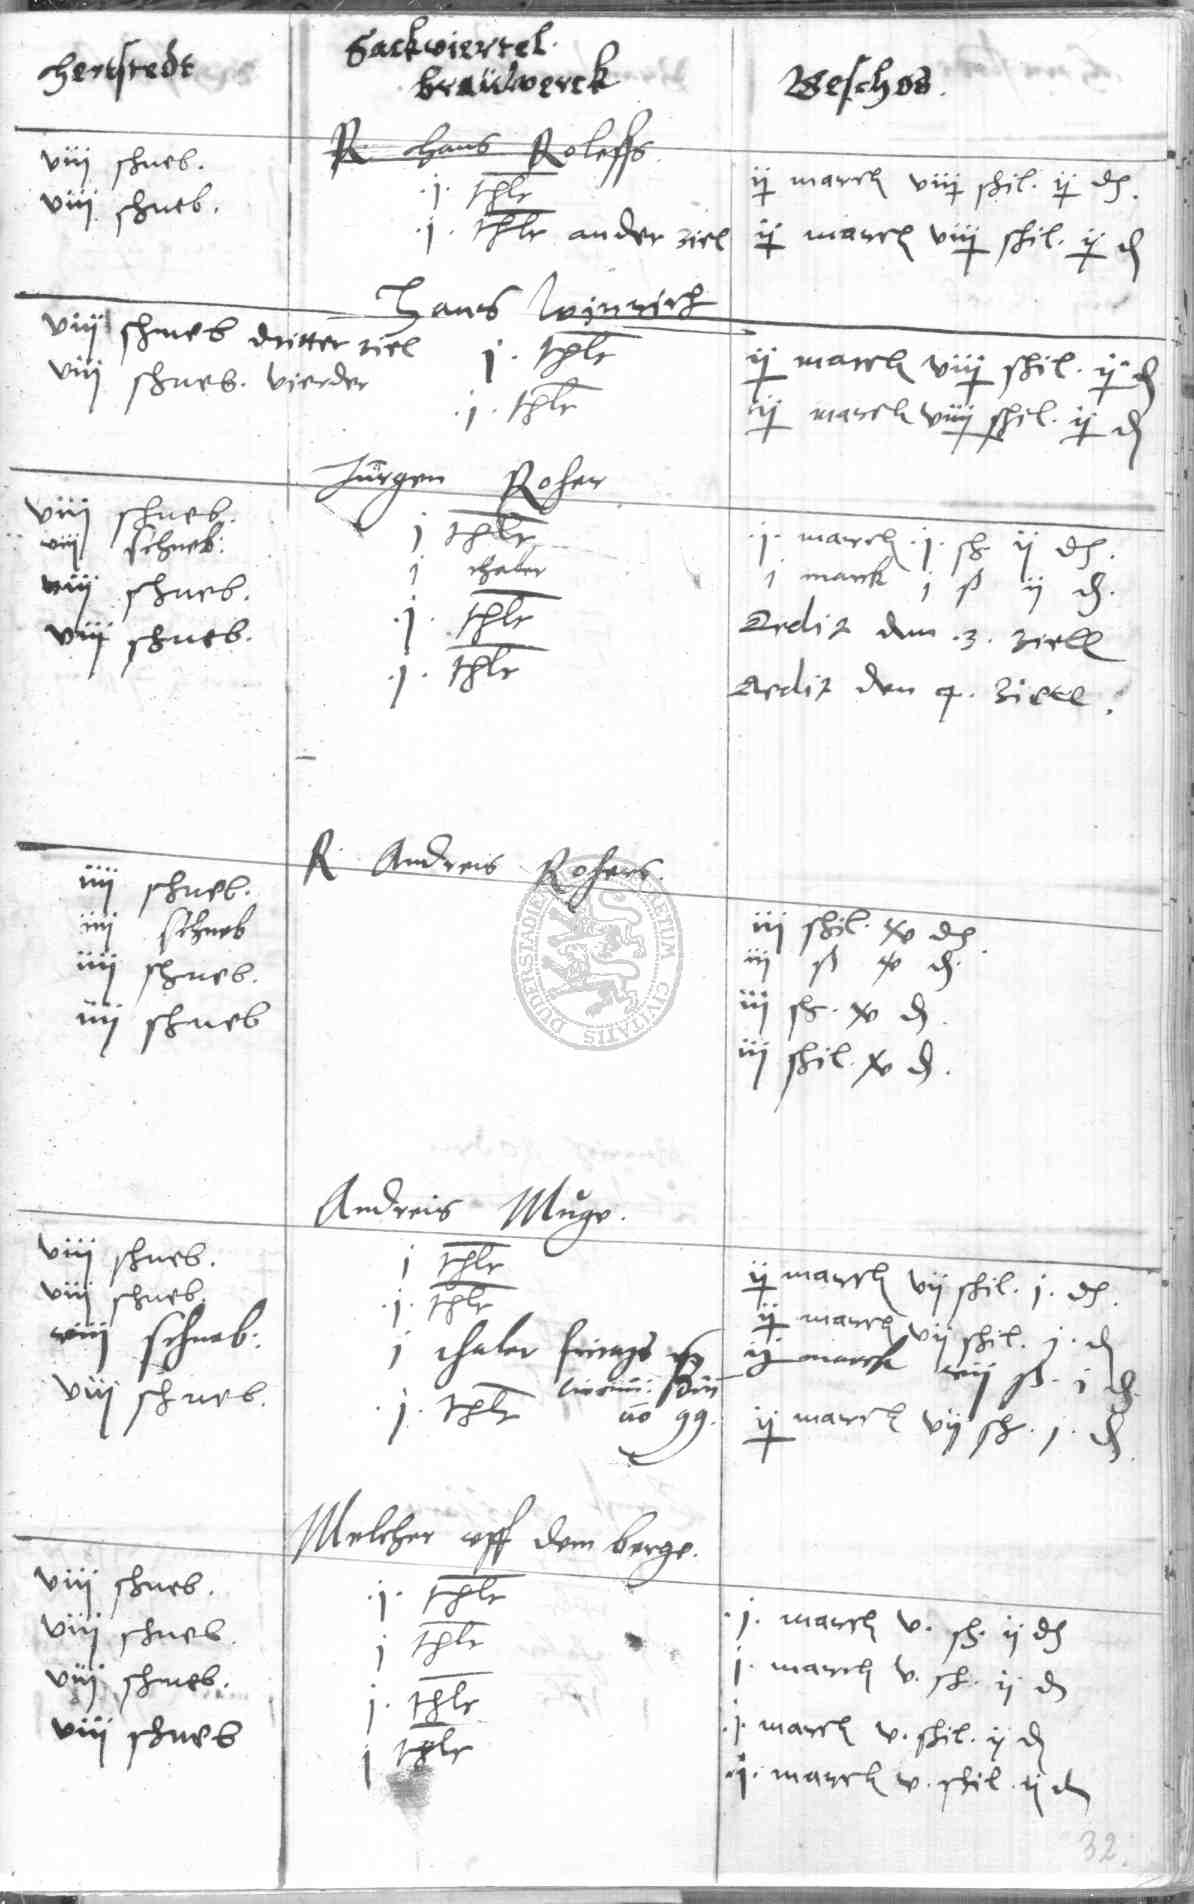 Sackviertel.
Hertstedt Brauwerck Geschos.
R Hans Roleffs.
viij schneb. .j. thlr ij marck viij shil. ij d.
viij schneb. .j. thlr ander ziel ij marck viij shil. ij d
Hans Winrich
viij schneb dritter ziel j. thlr ij marck viij shil. ij d
viij schneb. vierder .j. thlr ij marck viij shil. ij d
Jürgen Roher
viij schneb. j thlr .j. marck .j. sh ij d.
viij schneb. j thaler j marck j ß ij d.
viij schneb. .j. thlr dedit den .3. ziell
viij schneb. .j. thlr dedit den 4. Ziell.
R Andreis Rohers.
iiij schneb. iij shil. xv d.
iiij schneb iij ß xv d.
iiij schneb. iij sh. xv d.
iiij schneb iij shil. xv d.
SIGILLUM CIVITATIS DUDERSTADIENSIS
Andreis Muge.
viij schneb. j thlr ij marck vij shil. j. d.
viij schneb. .j. thlr ij marck vij shil. j. d
viij schneb. j thaler ij marck vij ß. j d.
viij schneb. .j. thlr ao 99. ij marck vij sh. j. d
Melcher uff dem berge.
viij schneb. .j. thlr .j. marck v. sh. ij d
viij schneb. j thlr j. marck v. sh. ij d
viij schneb. j. thlr .j. marck v. shil. ij d
viij schneb j thlr .j. marck v. shil. ij d
32.